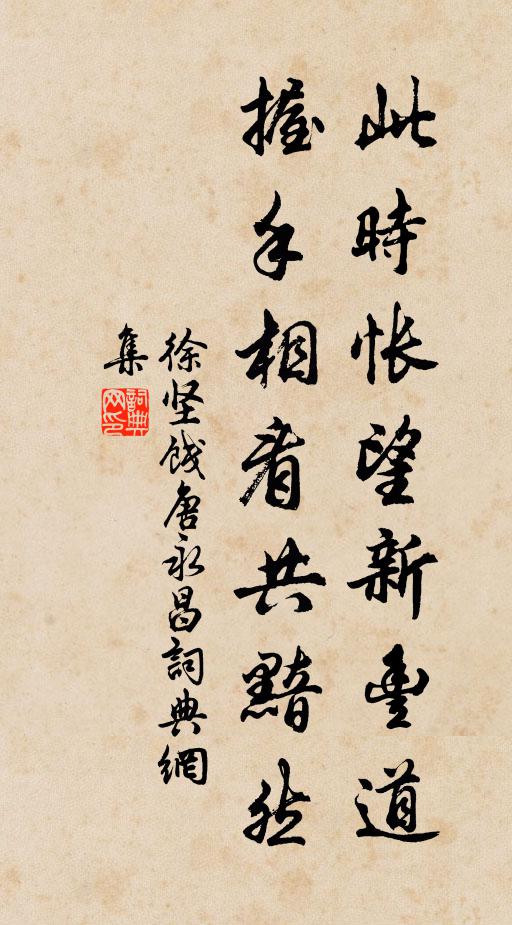 此時悵望新豐道
握手相看共黯然
徐坚餞唐永昌詞典網
集
詞典网印